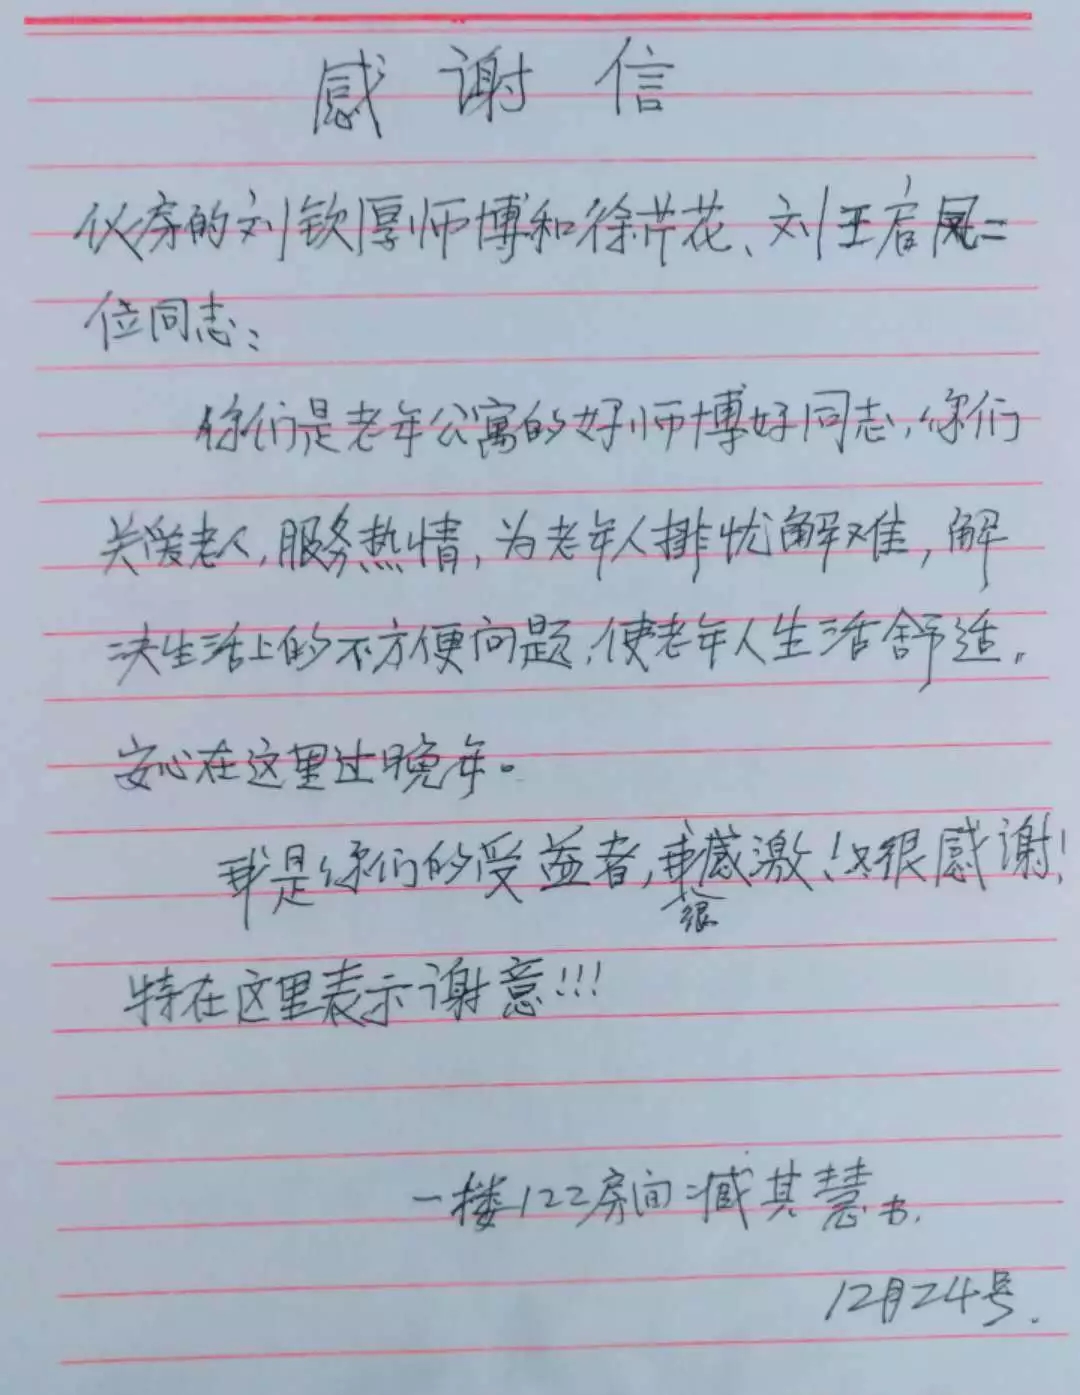 感谢信
伙房的刘钦厚师博和徐芹花、刘玉启凤二
位同志:
你们是老年公寓的好师博好同志,你们
关爱老人,服务热情,为老年人排忧解难,解
决生活上的不方便问题,使老年人生活舒适。
安心在这里过晚年。
我是你们的受益者,我很感激!很感谢!
特在这里表示谢意!!!
一楼122房间:臧其慧书.
12月24号.